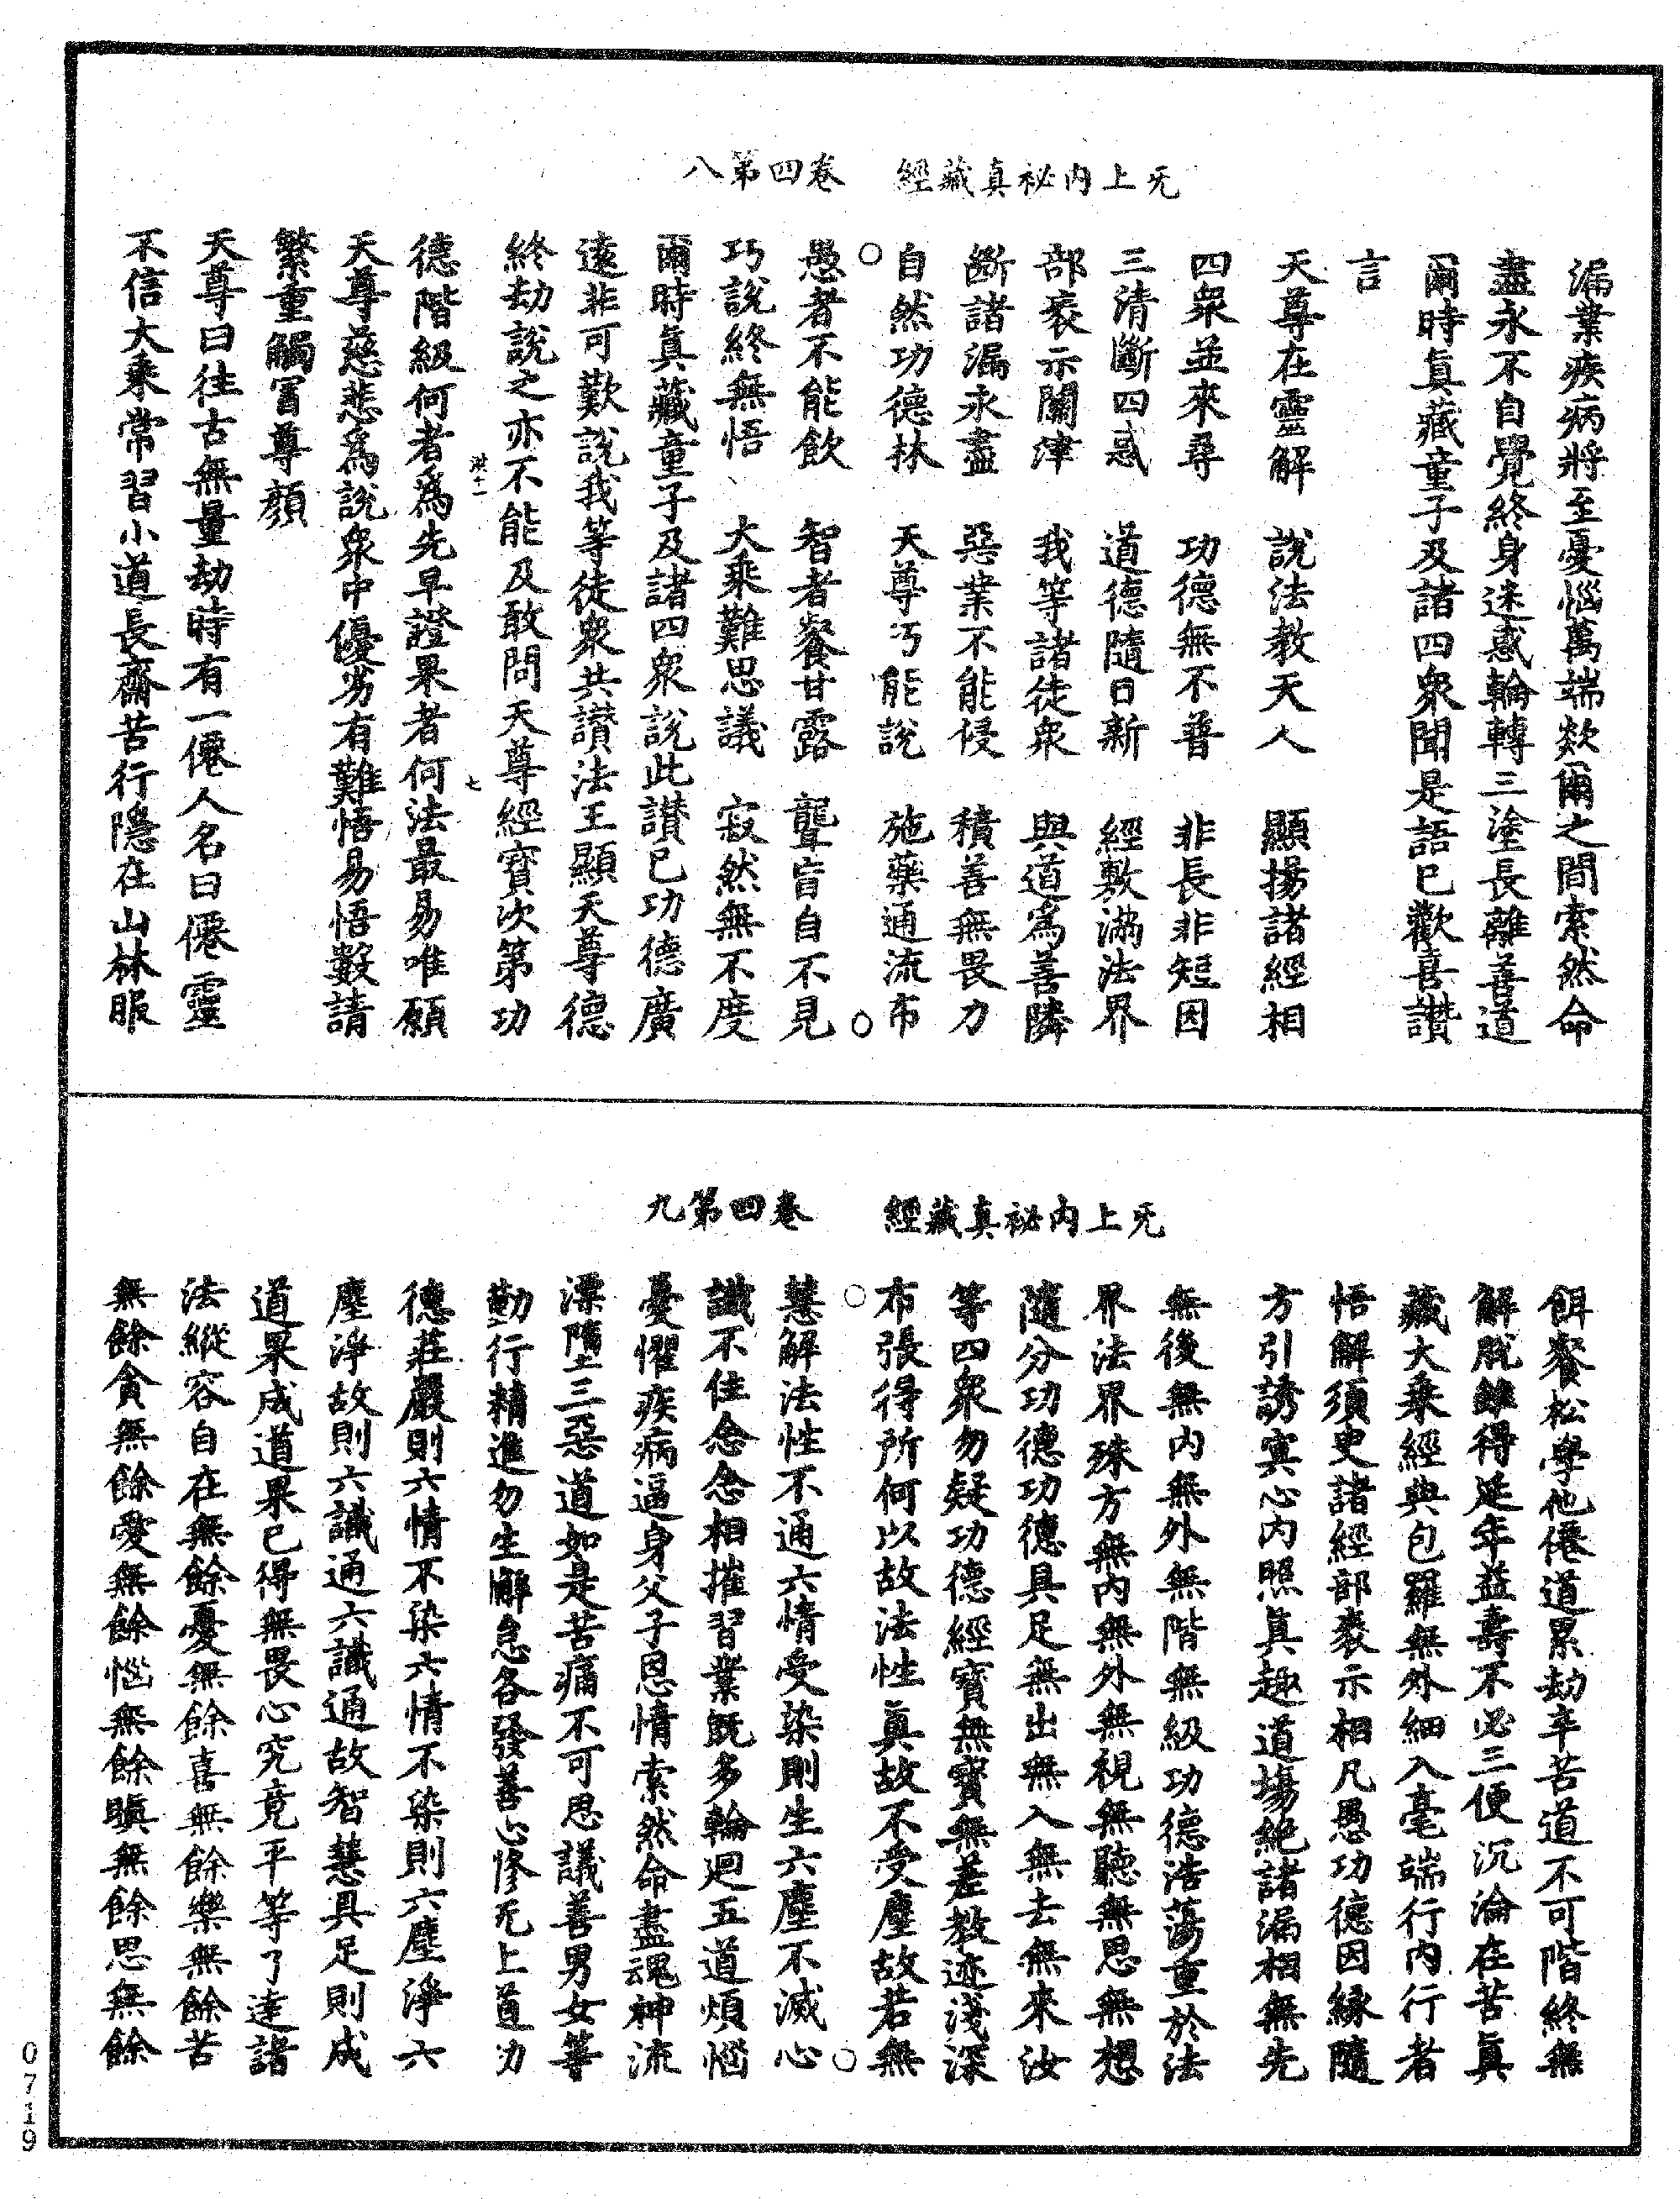 无上內祕真藏經　卷四第八
漏業疾病將至憂惱萬端欻爾之間索然命
盡永不自覺終身迷惑輪轉三塗長離善道
爾時真藏童子及諸四眾聞是語已歡喜讚
言
天尊在靈解　說法教天人　顯揚諸經相
四眾並來尋　功德無不普　非長非短因
三清斷四惑　道德隨日新　經敷滿法界
部袠示關津　我等諸徒眾　與道為善隣
斷諸漏永盡　惡業不能侵　積善無畏力
自然功德林　天尊巧能說　施藥通流布
愚者不能飲　智者飡甘露　聾盲自不見
巧說終無悟　大乘難思議　寂然無不度
爾時真藏童子及諸四眾說此讚已功德廣
遠非可歎說我等徒眾共讚法王顯天尊德
終劫說之亦不能及敢問天尊經寶次第功
洪十一　七
德階級何者為先早證果者何法最易唯願
天尊慈悲為說眾中優劣有難悟易悟數請
繁重觸冒尊顏
天尊曰往古無量劫時有一僊人名曰僊靈
不信大乘常習小道長齋苦行隱在山林服
无上內祕真藏經　卷四第九
餌飡松學他僊道累劫辛苦道不可階終無
解脫雖得延年益壽不必三便沉淪在苦真
藏大乘經典包羅無外細入毫端行內行者
悟解須臾諸經部袠示相凡愚功德因緣隨
方引誘寞心內照真趣道場絕諸漏相無先
無後無內無外無階無級功德浩蕩重於法
界法界殊方無內無外無視無聽無思無想
隨分功德功德具足無出無入無去無來汝
等四眾勿疑功德經寶無寶無差教迹淺深
布張得所何以故法性真故不受塵故若無
慧解法性不通六情受染則生六塵不滅心
識不住念念相摧習業既多輪迴五道煩惱
憂懼疾病逼身父子恩情索然命盡魂神流
漂墮三惡道如是苦痛不可思議善男女等
勤行精進勿生懈怠各發善心修无上道功
德莊嚴則六情不染六情不染則六塵淨六
塵淨故則六識通六識通故智慧具足則成
道果成道果已得無畏心究竟平等了達諸
法縱容自在無餘憂無餘喜無餘樂無餘苦
無餘貪無餘愛無餘惱無餘瞋無餘思無餘
0719